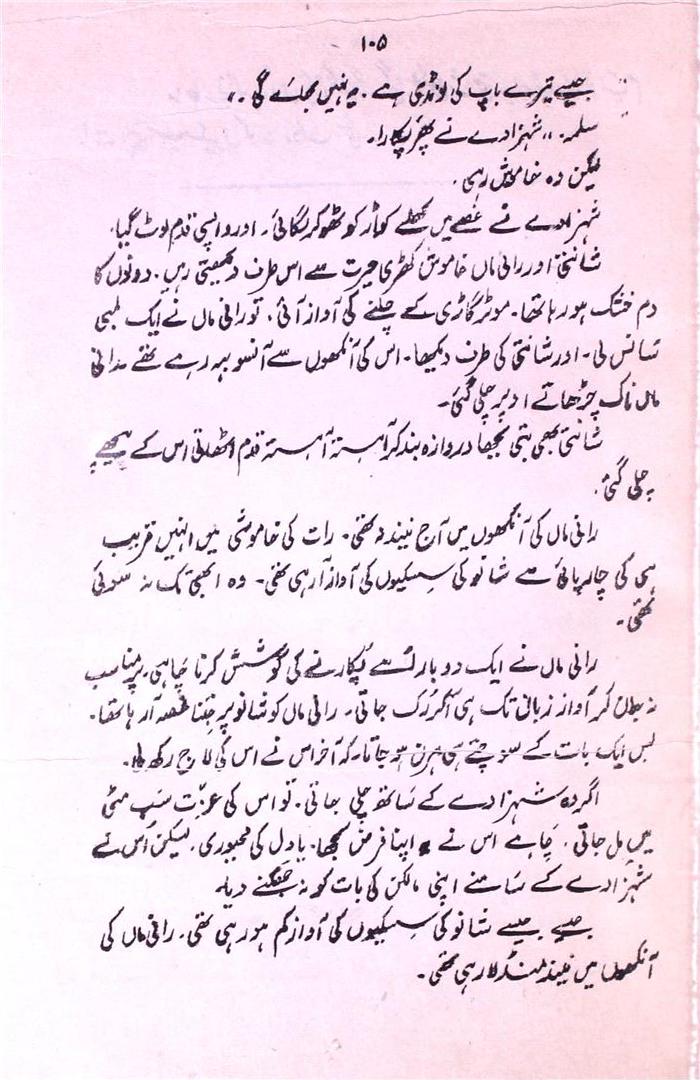 ۱۰۵
جیسے تیرے باپ کی لونڈی ہے۔ یہ نہیں جائے گا۔"
سلمہ۔" شہزادے نے پھر پکارا۔
لیکن وہ خاموش رہی۔
شہزادے نے غصے میں کھلے کواڑ کو ٹھوکر لگائی۔ اور واپسی قدم لوٹ گیا۔
شانتی اور رانی ماں خاموش کھڑی حیرت سے اس طرف دیکھتی رہیں۔ دونوں کا
دم خشک ہو رہا تھا۔ موٹر گاڑی کے چلنے کی آواز آئی۔ تو رانی ماں نے ایک لمبی
سانس لی۔ اور شانتی کی طرف دیکھا۔ اس کی آنکھوں سے آنسو بہہ رہے تھے۔ رانی
ماں ناک چڑھاتے اوپر چلی گئی۔
شانتی بھی بتی بجھا دروازہ بند کر آہستہ آہستہ قدم اٹھاتی اس کے پیچھے
چلی گئی۔
رانی ماں کی آنکھوں میں آج نیند نہ تھی۔ رات کی خاموشی میں انہیں قریب
ہی کی چارپائی سے شانو کی سسکیوں کی آواز آ رہی تھی۔ وہ ابھی تک نہ سوئی
تھی۔
رانی ماں نے ایک دو بار اسے پکارنے کی کوشش کرنا چاہی، پر مناسب
نہ جان کر آواز زبانی تک ہی آکر رُک جاتی۔ رانی ماں کو شانو پر جتنا غصہ آ رہا تھا۔
بس ایک بات کے سوچتے ہی ہرن ہو جاتا۔ کہ آخر اس نے اس کی لاج رکھ لی۔
اگر وہ شہزادے کے ساتھ چلی جاتی۔ تو اس کی عزّت سب مٹی
میں مل جاتی۔ چاہے اس نے اپنا فرض سمجھا۔ یا دل کی مجبوری۔ لیکن اُس نے
شہزادے کے سامنے اپنی مالکن کی بات کو نہ جھکنے دیا۔
جیسے جیسے شانو کی سسکیوں کی آواز کم ہو رہی تھی۔ رانی ماں کی
آنکھوں میں نیند منڈلا رہی تھی۔